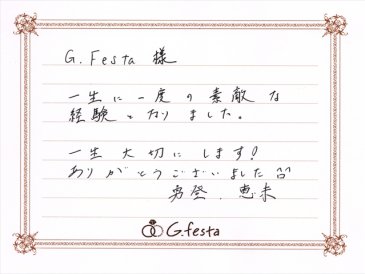 G.Festa 様
一生に一度の素敵な
経験となりました。
一生大切にします!
ありがとうございました^^
勇登. 恵未
G.festa